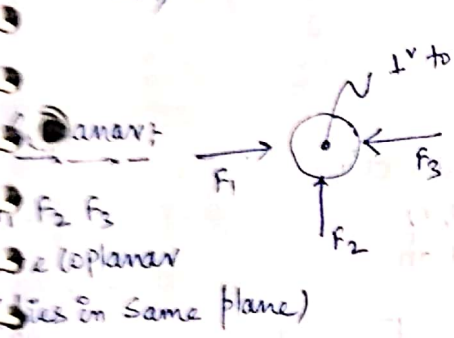 ⊥ʳ to
anar:-
F₁
F₃
F₂ F₃
F₂
coplanar
lies in same plane)